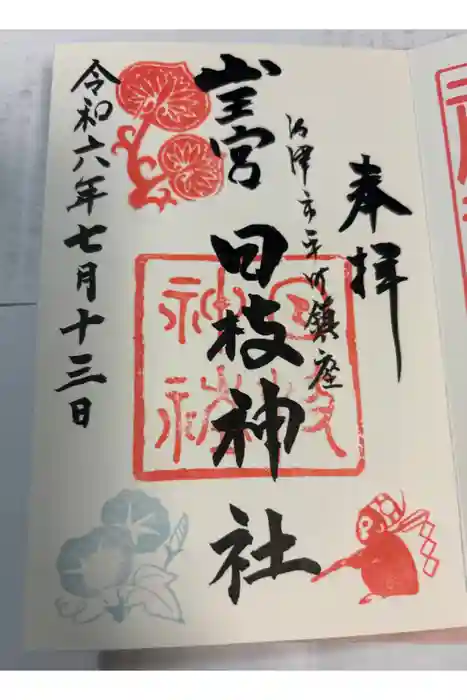 奉拝
沼津市平町鎮座
山王宮
日枝神社
令和六年七月十三日
日枝
神社